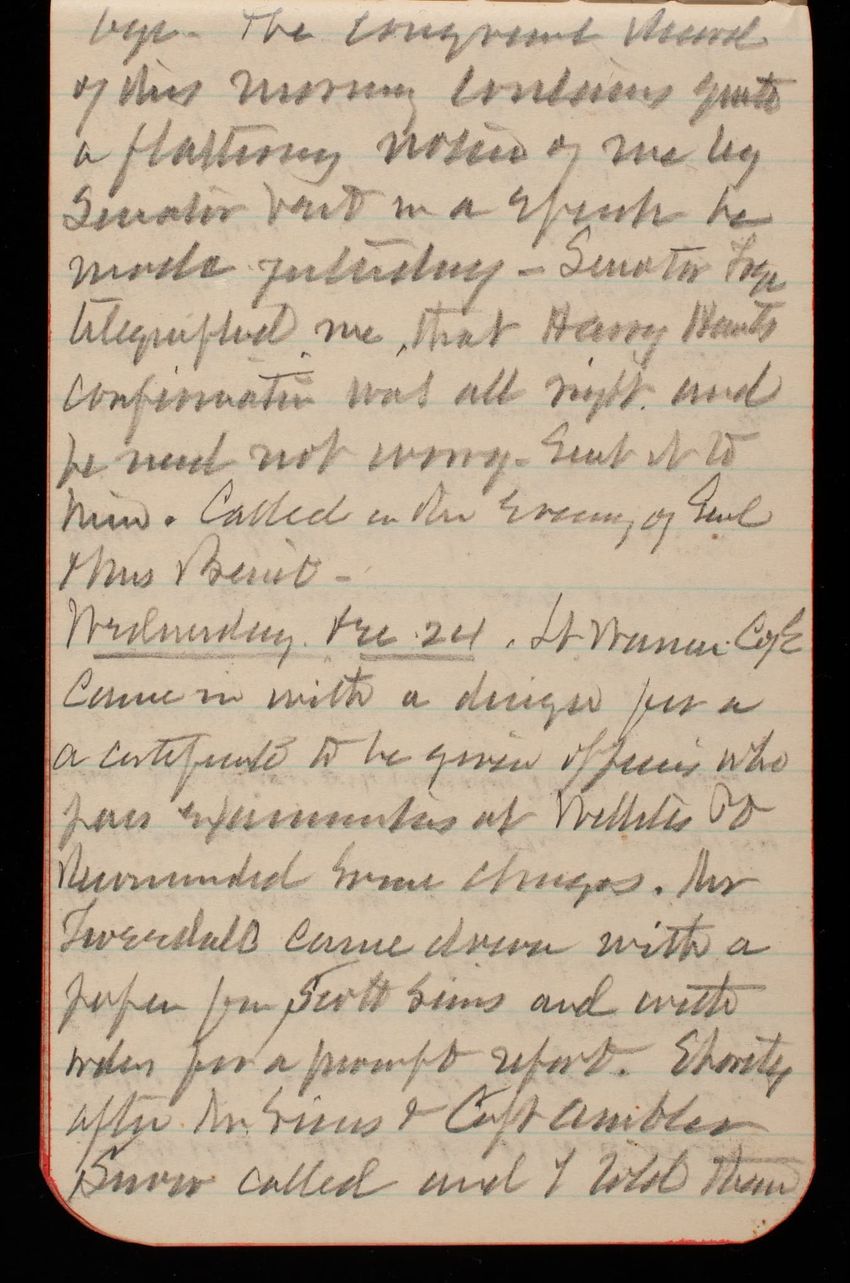 The Congressional Record
of this morning contains quite
a flattering notice of me by
Senator Vest in a speech he
made yesterday - Senator Frye
telegraphed me, that Harry
confirmation was all right and
he need not worry - Sent it to
him. Called in the Evening of Genl
& Mrs Benet -
Wednesday, Dec 24. Lt Warren Cof E
Came in with a design for a
a certificate to be given officers who
pass examination at Willets Pt
Recommended some changes. Mr
Tweedale came down with a
paper from Scott Sims and with
orders for a prompt report. Shortly
after Mr Sims & Capt Ambler
Snow called and I told them